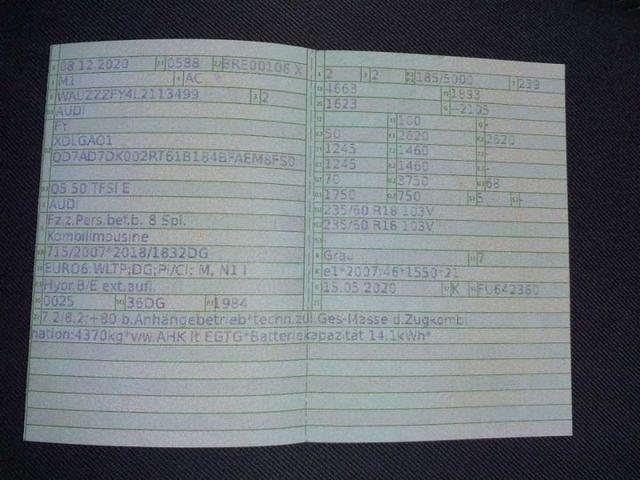 08.12.2020 0588 BRE00106 X
M1 AC
WAUZZZFY4L2113499 2
AUDI
FY
XDLGAO1
QD7AD7DK002RT61B184BFAEM8FS0
Q5 50 TFSI E
AUDI
Fz.z.Pers.bef.b. 8 Spl.
Kombilimousine
715/2007*2018/1832DG
EURO6;WLTP;DG;PI/CI; M, N1 I
Hybr.B/E ext.aufl.
0025 36DG 1984
2 2 185/5000 239
4663 1893
1623 -2105
100 -
50 2620 2620
1245 1460 -
1245 1460 -
70 3750 68
1750 750 5 -
235/60 R18 103V
235/60 R18 103V
-
Grau 7
e1*2007/46*1550*21
15.05.2020 K FU642360
7.2/8.2:+80 b.Anhängebetrieb*techn.zul.Ges-Masse d.Zugkombi
nation:4370kg*ww.AHK lt.EGTG*Batteriekapazität 14.1kWh*